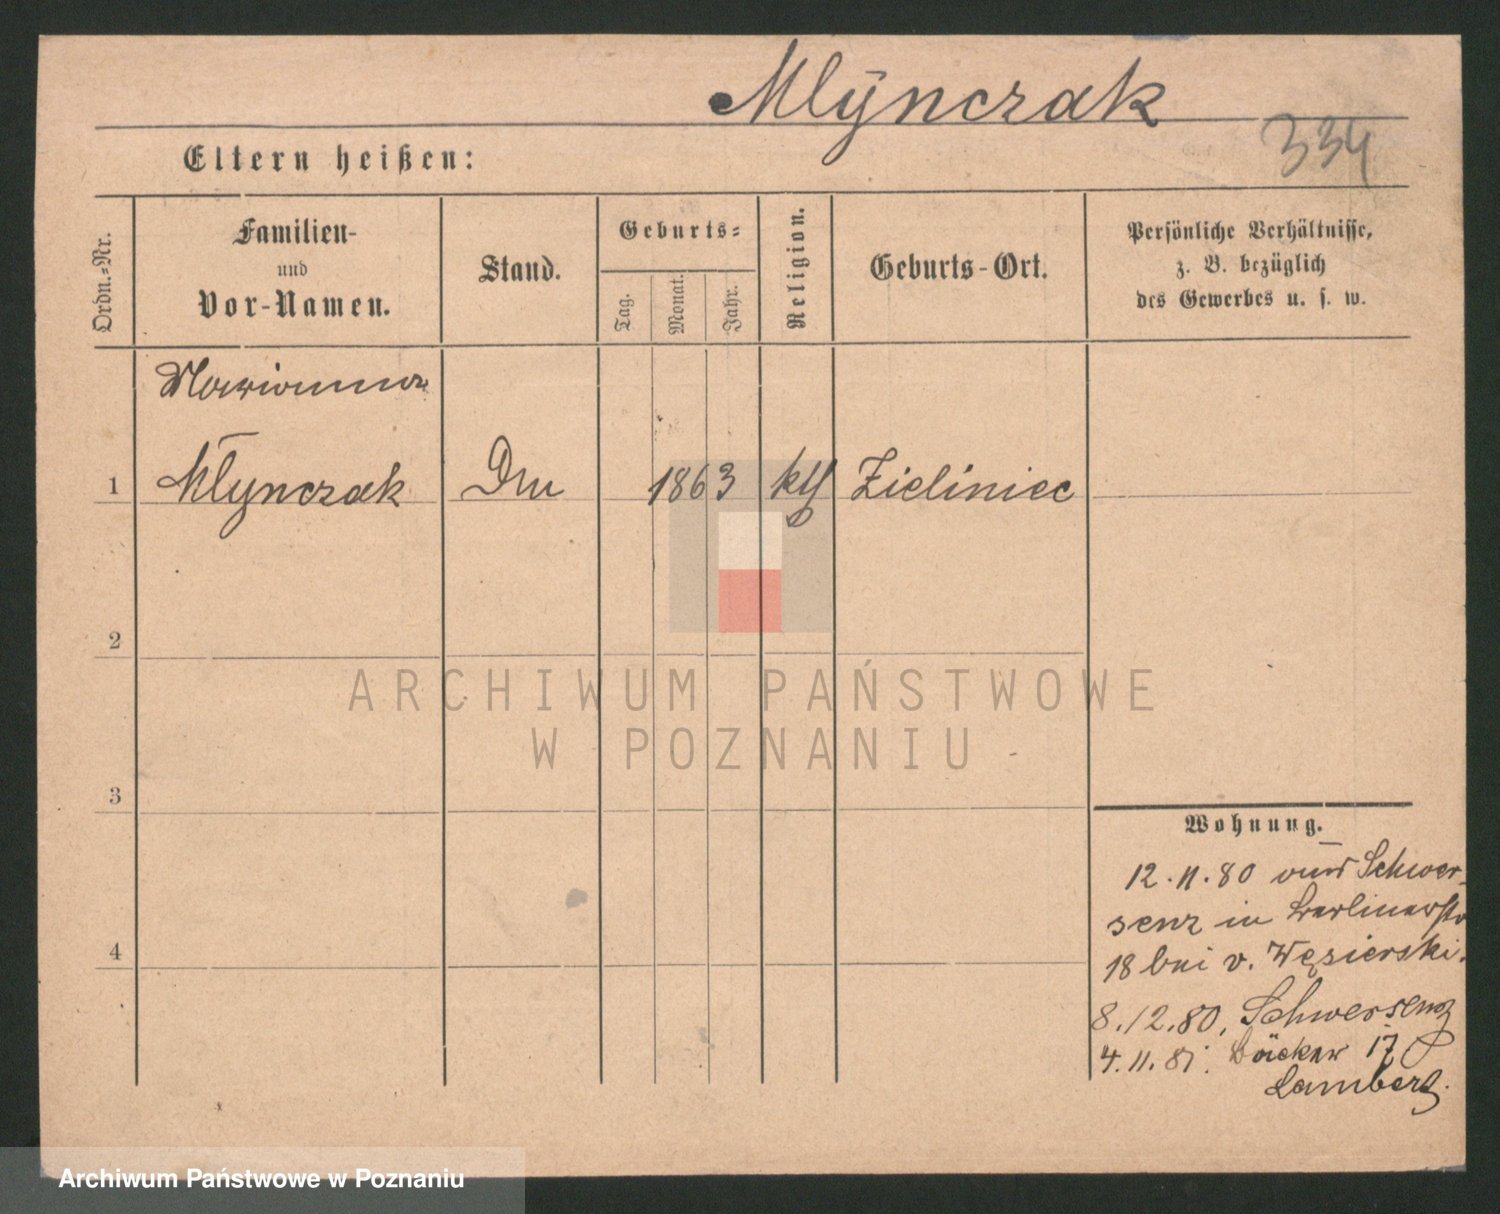 Mlÿnczak
334
Eltern heißen:
Ordn.-Nr.
Familien-
und
Vor-Namen.
Stand.
Geburts-
Tag.
Monat.
Jahr.
Religion.
Geburts-Ort.
Persönliche Verhältnisse,
z. B. bezüglich
des Gewerbes u. s. w.
Marianna
1 Młynczak 1863 Zieliniec
2
3
4
ARCHIWUM PAŃSTWOWE
W POZNANIU
Wohnung.
12.11.80 Schwer-
senz in Berlinerstr
18 bei v. Węsierski.
8.12.80. Schwersenz
4.11.81. Bäcker 17
Lamberg.
Archiwum Państwowe w Poznaniu